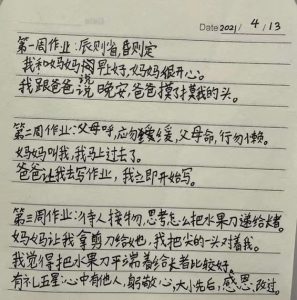 Date 2021 / 4 / 13
第一周作业:辰则省,昏则定
我和妈妈问早上好,妈妈很开心。
我跟爸爸说晚安,爸爸摸了摸我的头。
第二周作业:父母呼,应勿缓,父母命,行勿懒。
妈妈叫我,我马上过去了。
爸爸让我去写作业,我立即开始写。
第三周作业:待人接物,思考怎么把水果刀递给长者。
妈妈让我拿剪刀给她,我把尖的一头对着我。
我觉得把水果刀平端着给长者比较好。
有礼五星:心中有他人,躬敬心,大小先后,感恩,改过。